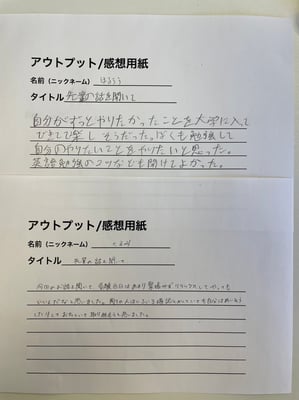 アウトプット/感想用紙
名前（ニックネーム） はるろう
タイトル 先輩の話を聞いて
自分がずっとやりたかったことを大学に入って
できてて楽しそうだった。ぼくも勉強して
自分のやりたいことをやりたいと思った。
英語勉強のコツなども聞けてよかった。
アウトプット/感想用紙
名前（ニックネーム）
タイトル 先輩の話を聞いて
今回のお話を聞いて、受験当日はあまり緊張せずリラックスして
いいんだなと思いました。周りの人
したりしておちついて取り組もうと思いました。